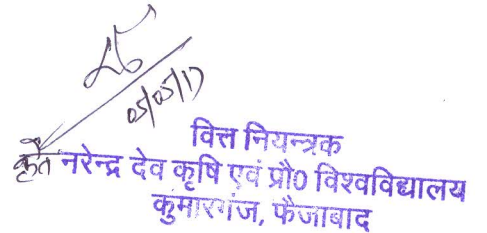 05/05/17
वित्त नियन्त्रक
कृतै नरेन्द्र देव कृषि एवं प्रौ0 विश्वविद्यालय
कुमारगंज, फैजाबाद